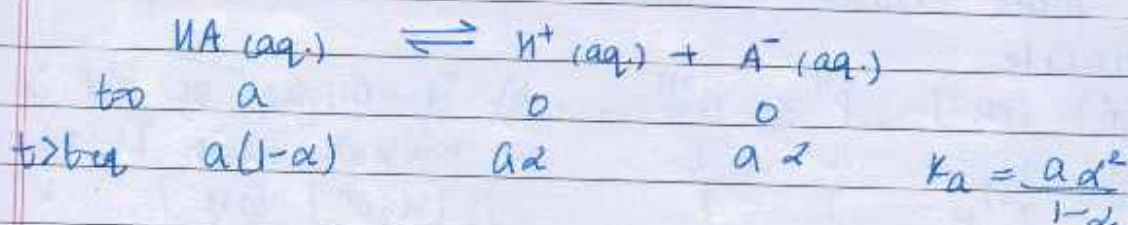 HA (aq.) ⇌ H⁺ (aq.) + A⁻ (aq.)
t=0 a 0 0
t>teq a(1-α) aα aα Ka = aα²
1-α